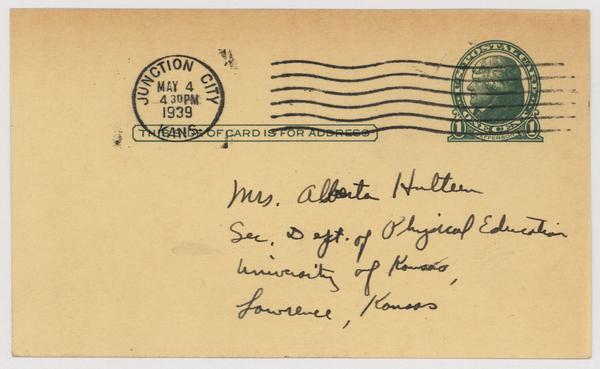 JUNCTION CITY
MAY 4
4 30 PM
1939
KANS.
U.S. POSTAL CARD
1 ONE CENT 1
JEFFERSON
THIS SIDE OF CARD IS FOR ADDRESS
Mrs. Alberta Hulteen
Sec. Dept. of Physical Education
University of Kansas,
Lawrence, Kansas